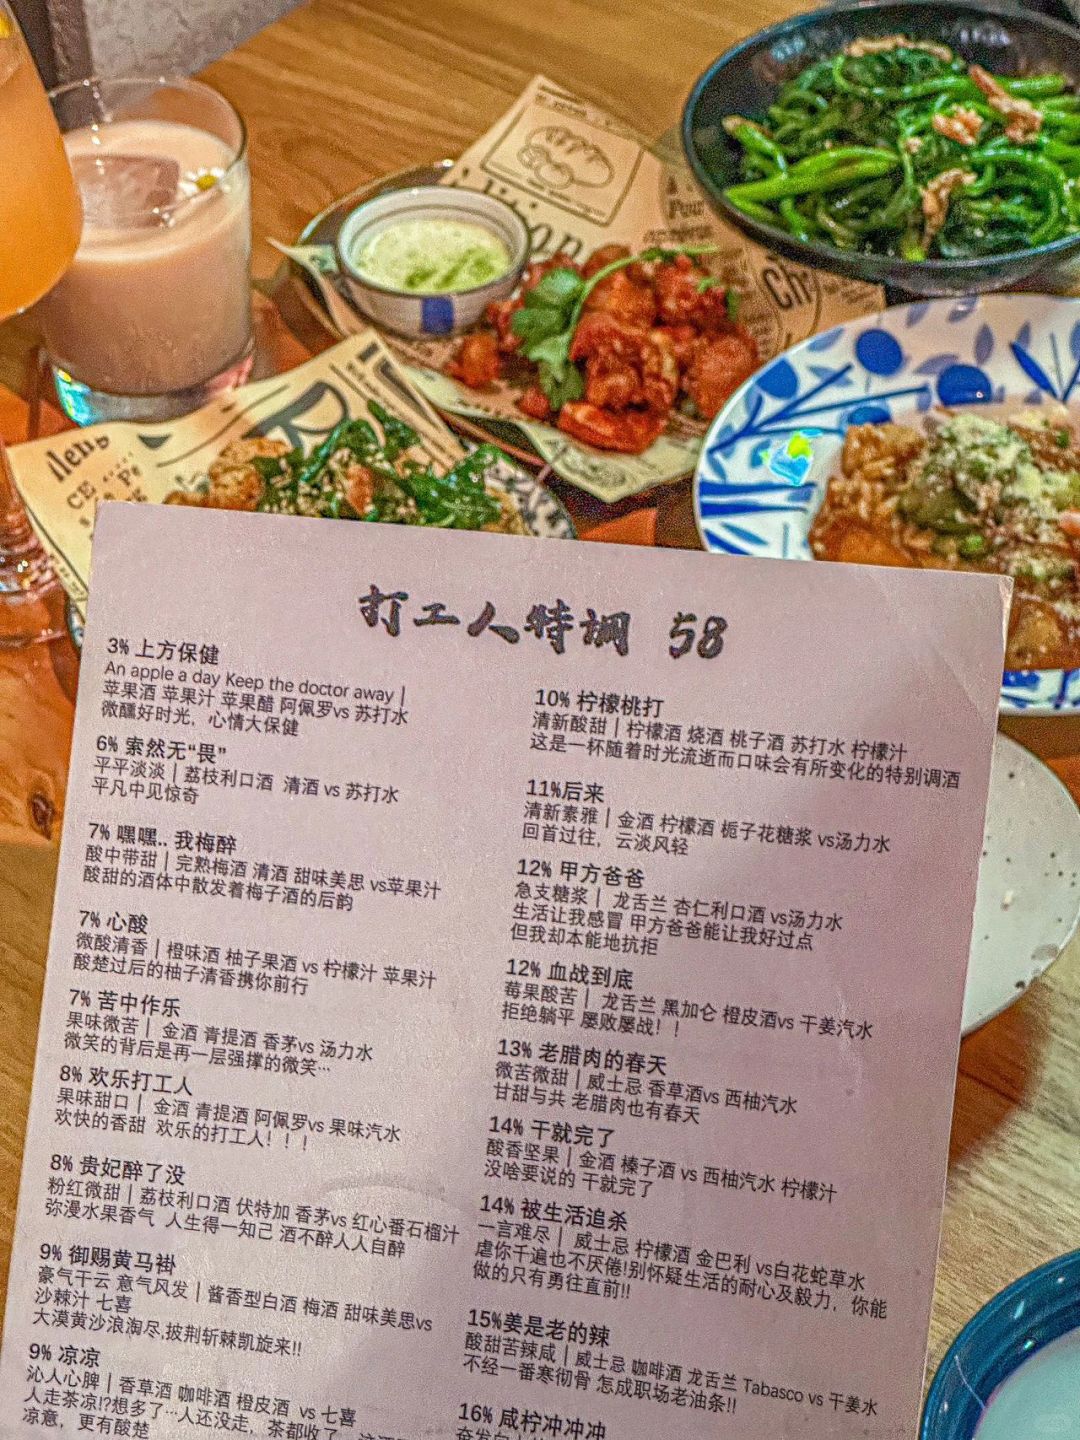 打工人特调 58
3% 上方保健
An apple a day Keep the doctor away |
苹果酒 苹果汁 苹果醋 阿佩罗vs 苏打水
微醺好时光，心情大保健
6% 索然无“畏”
平平淡淡 | 荔枝利口酒 清酒 vs 苏打水
平凡中见惊奇
7% 嘿嘿.. 我梅醉
酸中带甜 | 完熟梅酒 清酒 甜味美思 vs苹果汁
酸甜的酒体中散发着梅子酒的后韵
7% 心酸
微酸清香 | 橙味酒 柚子果酒 vs 柠檬汁 苹果汁
酸楚过后的柚子清香携你前行
7% 苦中作乐
果味微苦 | 金酒 青提酒 香茅vs 汤力水
微笑的背后是再一层强撑的微笑…
8% 欢乐打工人
果味甜口 | 金酒 青提酒 阿佩罗vs 果味汽水
欢快的香甜 欢乐的打工人！！！
8% 贵妃醉了没
粉红微甜 | 荔枝利口酒 伏特加 香茅vs 红心番石榴汁
弥漫水果香气 人生得一知己 酒不醉人人自醉
9% 御赐黄马褂
豪气干云 意气风发 | 酱香型白酒 梅酒 甜味美思vs
沙棘汁 七喜
大漠黄沙浪淘尽,披荆斩棘凯旋来!!
9% 凉凉
沁人心脾 | 香草酒 咖啡酒 橙皮酒 vs 七喜
人走茶凉!?想多了…人还没走，茶都收了
凉意，更有酸楚
10% 柠檬桃打
清新酸甜 | 柠檬酒 烧酒 桃子酒 苏打水 柠檬汁
这是一杯随着时光流逝而口味会有所变化的特别调酒
11%后来
清新素雅 | 金酒 柠檬酒 栀子花糖浆 vs汤力水
回首过往，云淡风轻
12% 甲方爸爸
急支糖浆 | 龙舌兰 杏仁利口酒 vs汤力水
生活让我感冒 甲方爸爸能让我好过点
但我却本能地抗拒
12% 血战到底
莓果酸苦 | 龙舌兰 黑加仑 橙皮酒vs 干姜汽水
拒绝躺平 屡败屡战！！
13% 老腊肉的春天
微苦微甜 | 威士忌 香草酒vs 西柚汽水
甘甜与共 老腊肉也有春天
14% 干就完了
酸香坚果 | 金酒 榛子酒 vs 西柚汽水 柠檬汁
没啥要说的 干就完了
14% 被生活追杀
一言难尽 | 威士忌 柠檬酒 金巴利 vs白花蛇草水
虐你千遍也不厌倦!别怀疑生活的耐心及毅力，你能
做的只有勇往直前!!
15%姜是老的辣
酸甜苦辣咸 | 威士忌 咖啡酒 龙舌兰 Tabasco vs 干姜水
不经一番寒彻骨 怎成职场老油条!!
16% 咸柠冲冲冲